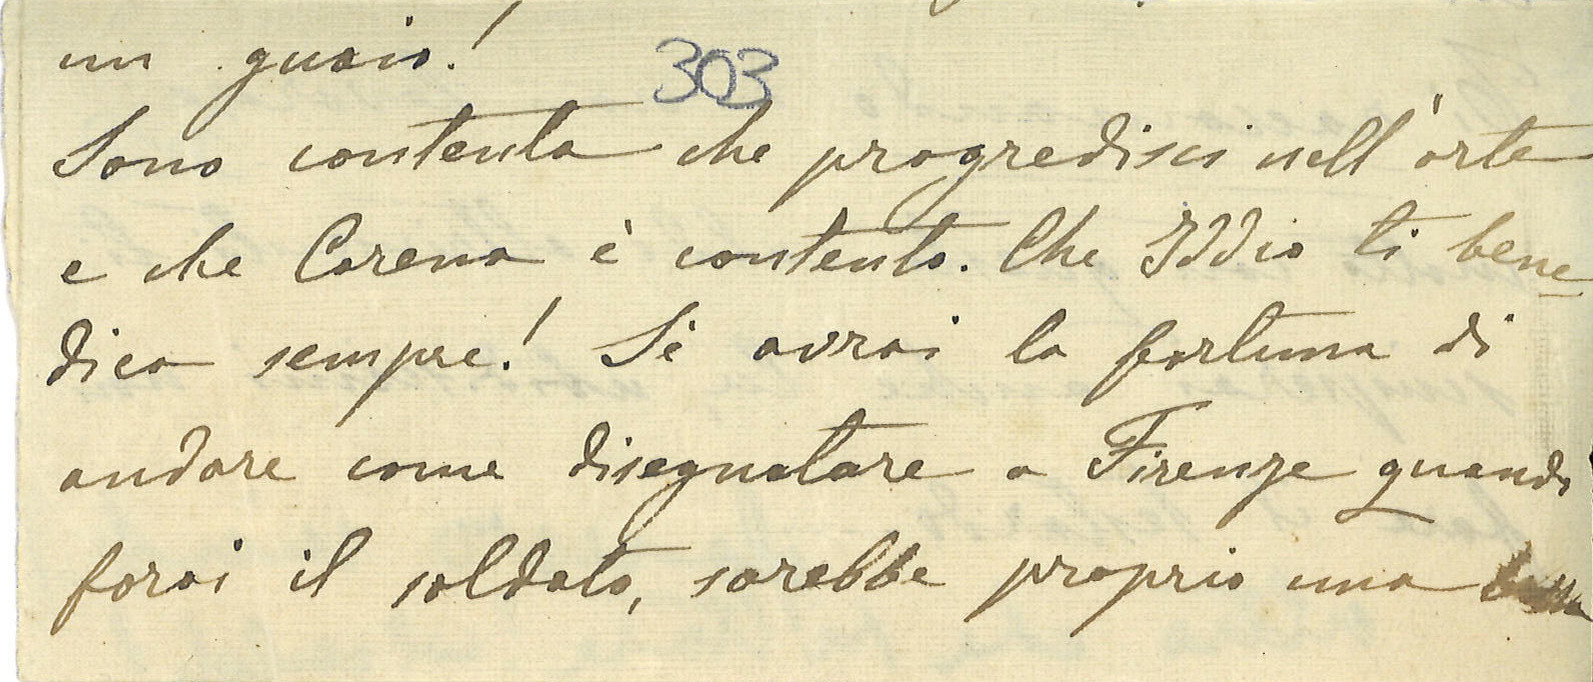 un guaio!
303
Sono contenta che progredisci nell'arte
e che Carena è contento. Che Iddio ti bene-
dica sempre! Se avrai la fortuna di
andare come disegnatore a Firenze quando
farai il soldato, sarebbe proprio una